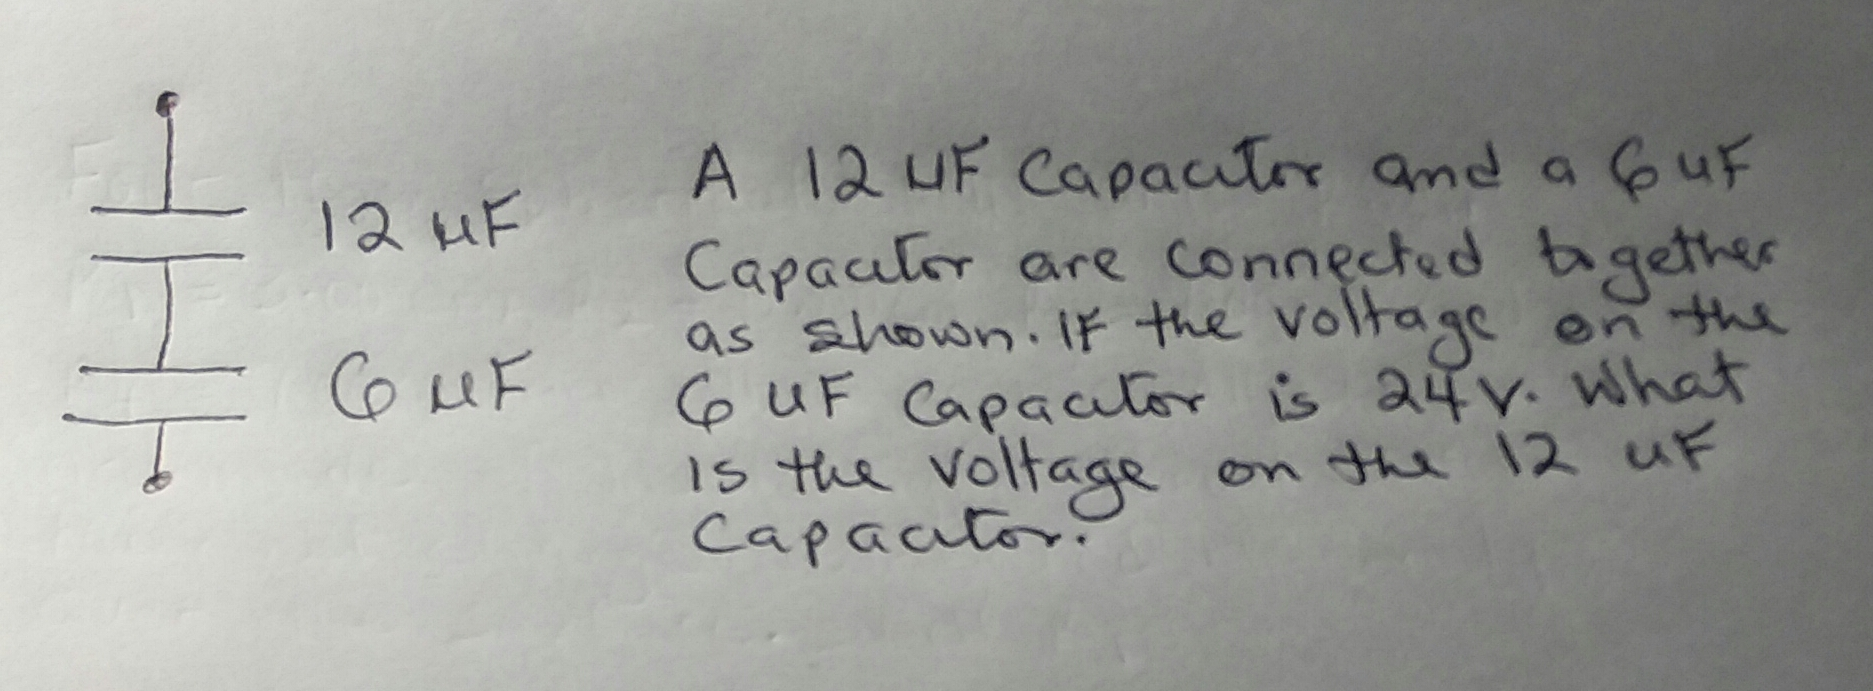 12 µF
6 µF
A 12 uF Capacitor and a 6 uF
Capacitor are connected together
as shown. IF the voltage on the
6 uF Capacitor is 24 v. What
is the voltage on the 12 uF
Capacitor.